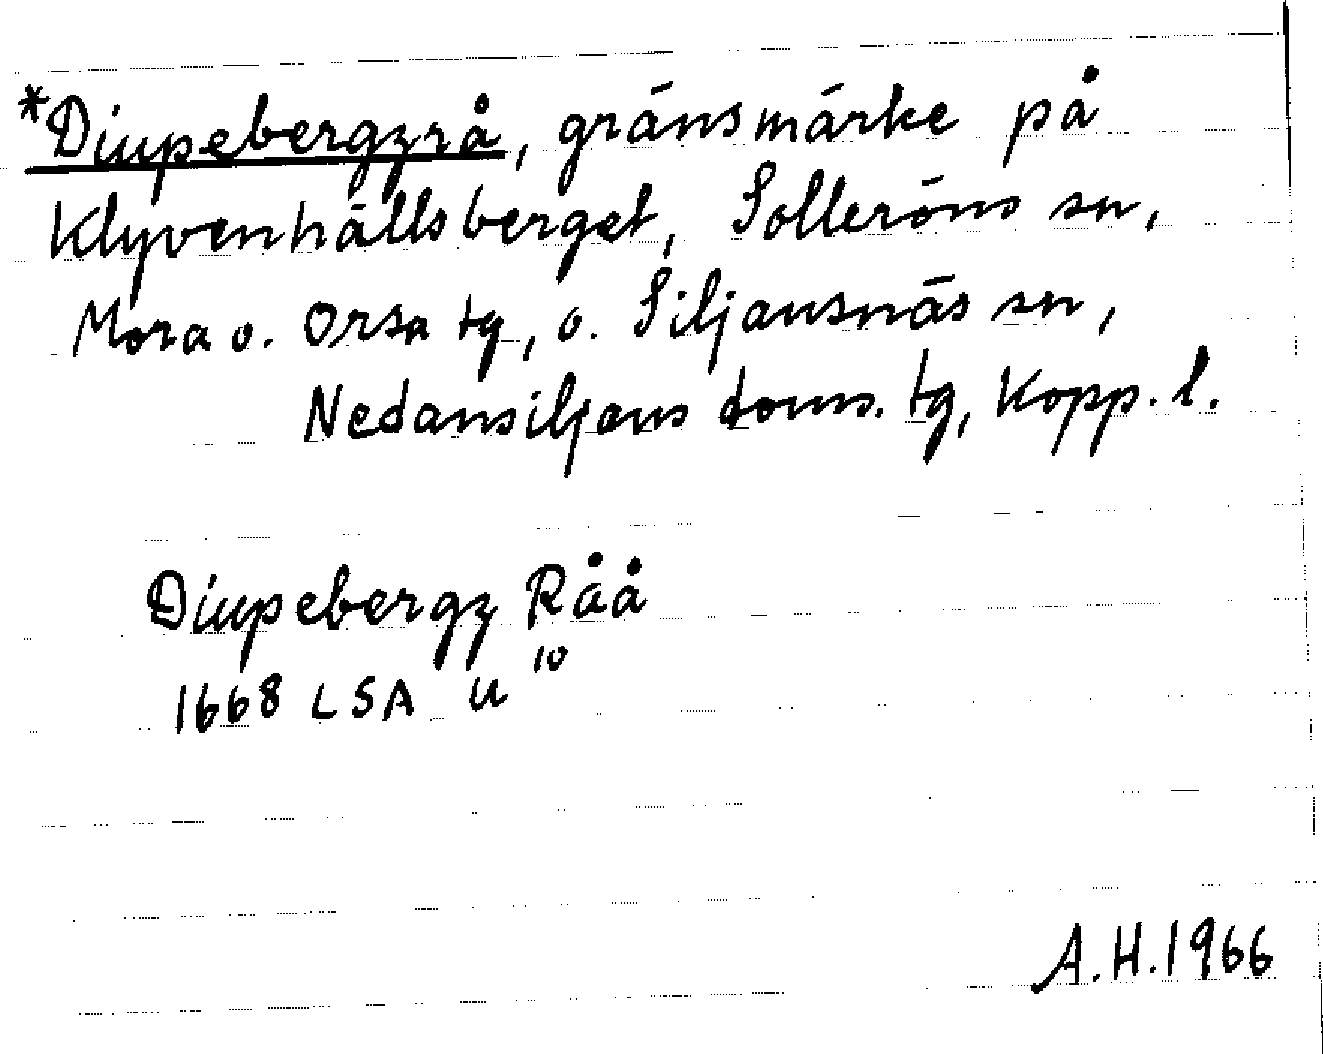 *Diupebergzrå, gränsmärke på
Klyvenhällsberget, Solleröns sn,
Mora o. Orsa tg, o. Siljansnäs sn,
Nedansiljans doms. tg, Kopp. l.
Diupebergz Råå
1668 LSA U 10
A.H.1966